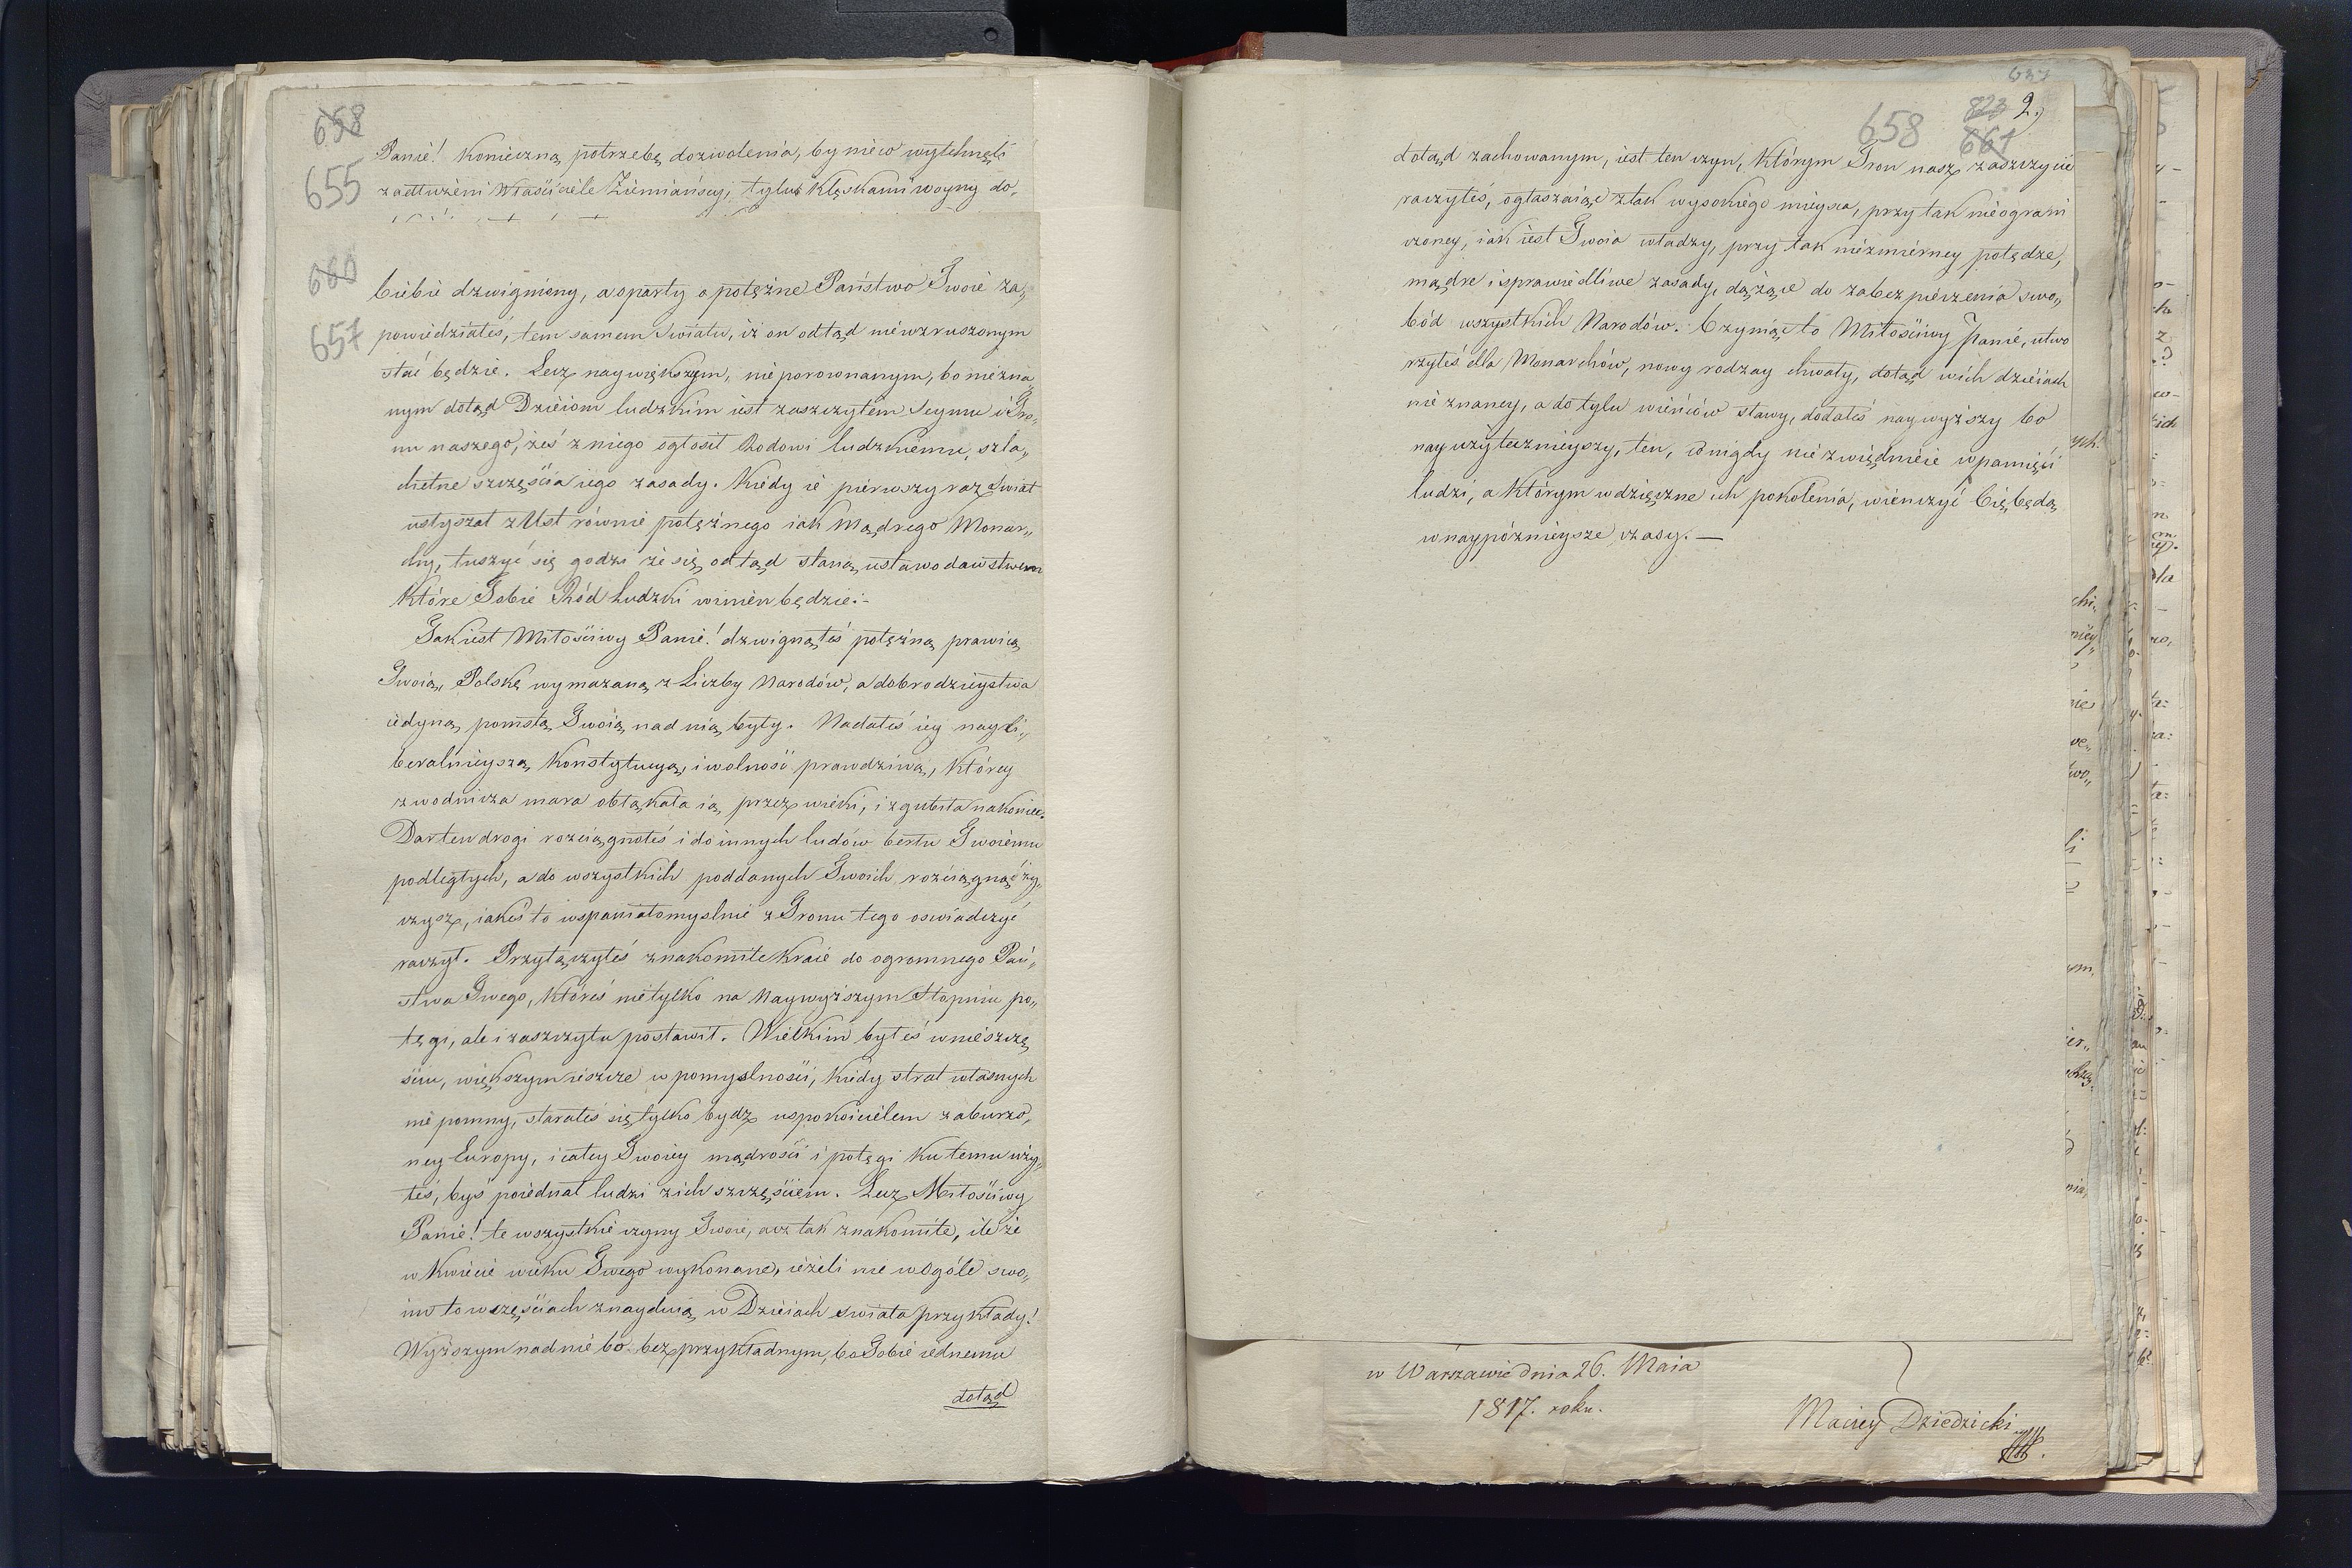 658
655
Panie! Konieczną potrzebę dozwolenia, by niew wytchnęli
zadłużeni Właściciele Ziemiańscy, tylu Klęskami woyny do„
660
657
Ciebie dzwigniony, a oparty o potężne Państwo Twoie za„
powiedziałeś, tem samem Swiatu, iż on odtąd niewzruszonym
stać będzie. Lecz naywiększym, nieporownanym, bo niezna„
nym dotąd Dzieiom ludzkim iest zaszczytem Seymu i Tro„
nu naszego, żeś z niego ogłosił Rodowi ludzkiemu, szla„
chetne szczęścia iego zasady. Kiedy ie pierwszy raz Swiat
usłyszał z Ust równie potężnego iak Mądrego Monar„
chy, tuszyć się godzi że się odtąd staną ustawodawstwem
które Tobie Ród Ludzki winien będzie:-
Tak iest Miłościwy Panie! dzwignąłeś potężną prawicą
Twoią, Polskę wymazaną z Liczby Narodów, a dobrodzieystwa
iedyną pomstą Twoią nad nią były. Nadałeś iey nayli„
beralnieyszą Konstytucyą, i wolność prawdziwą, którey
zwodnicza mara obłąkała ią przez wieki, i zgubiła nakoniec.
Dar ten drogi rozciągnołeś i do innych ludów berłu Twoiemu
podległych, a do wszystkich poddanych Twoich rozciągnąć ży„
czysz, iakeś to wspaniałomyslnie z Tronu tego oswiadczyć
raczył. Przyłączyłeś znakomite Kraie do ogromnego Pań„
stwa Twego, któreś nietylko na Naywyższym Stopniu po„
tęgi, ale i zaszczytu postawił. Wielkim byłeś w nieszczę
ściu, większym ieszcze w pomyslności, kiedy strat własnych
niepomny, starałeś się tylko bydz uspokoicielem zaburzo„
ney Europy, i całey Twoiey mądrości i potęgi ku temu uży„
łeś, byś poiednał ludzi z ich szczęściem. Lecz Miłościwy
Panie! te wszystkie czyny Twoie, acz tak znakomite, ile że
w Kwiecie wieku Twego wykonane, ieżeli nie w Ogóle swo„
im to w częściach znayduią w Dzieiach swiata przykłady!
Wyższym nad nie bo bezprzykładnym, bo Tobie iednemu
dotąd
637
823 2.)
658 661
dotąd zachowanym, iest ten czyn, którym Tron nasz zaszczycić
raczyłeś, ogłaszaiąc z tak wysokiego mieysca, przy tak nieograni
czoney, iak iest Twoia władzy, przy tak niezmierney potędze,
mądre i sprawiedliwe zasady, dążące do zabezpieczenia swo„
bód wszystkich Narodów. Czyniąc to Miłościwy Panie, utwo
rzyłeś dla Monarchów, nowy rodzay chwały, dotąd w ich dzieiach
nieznaney, a do tylu wieńców sławy, dodałeś naywyższy bo
nayużytecznieyszy, ten, co nigdy nie zwiędnieie w pamięci
ludzi, a którym wdzięczne ich pokolenia, wienczyć Cię będą
w naypóznieysze czasy. —
w Warszawie dnia 26. Maia
1817. roku.
Maciey Dziedzicki